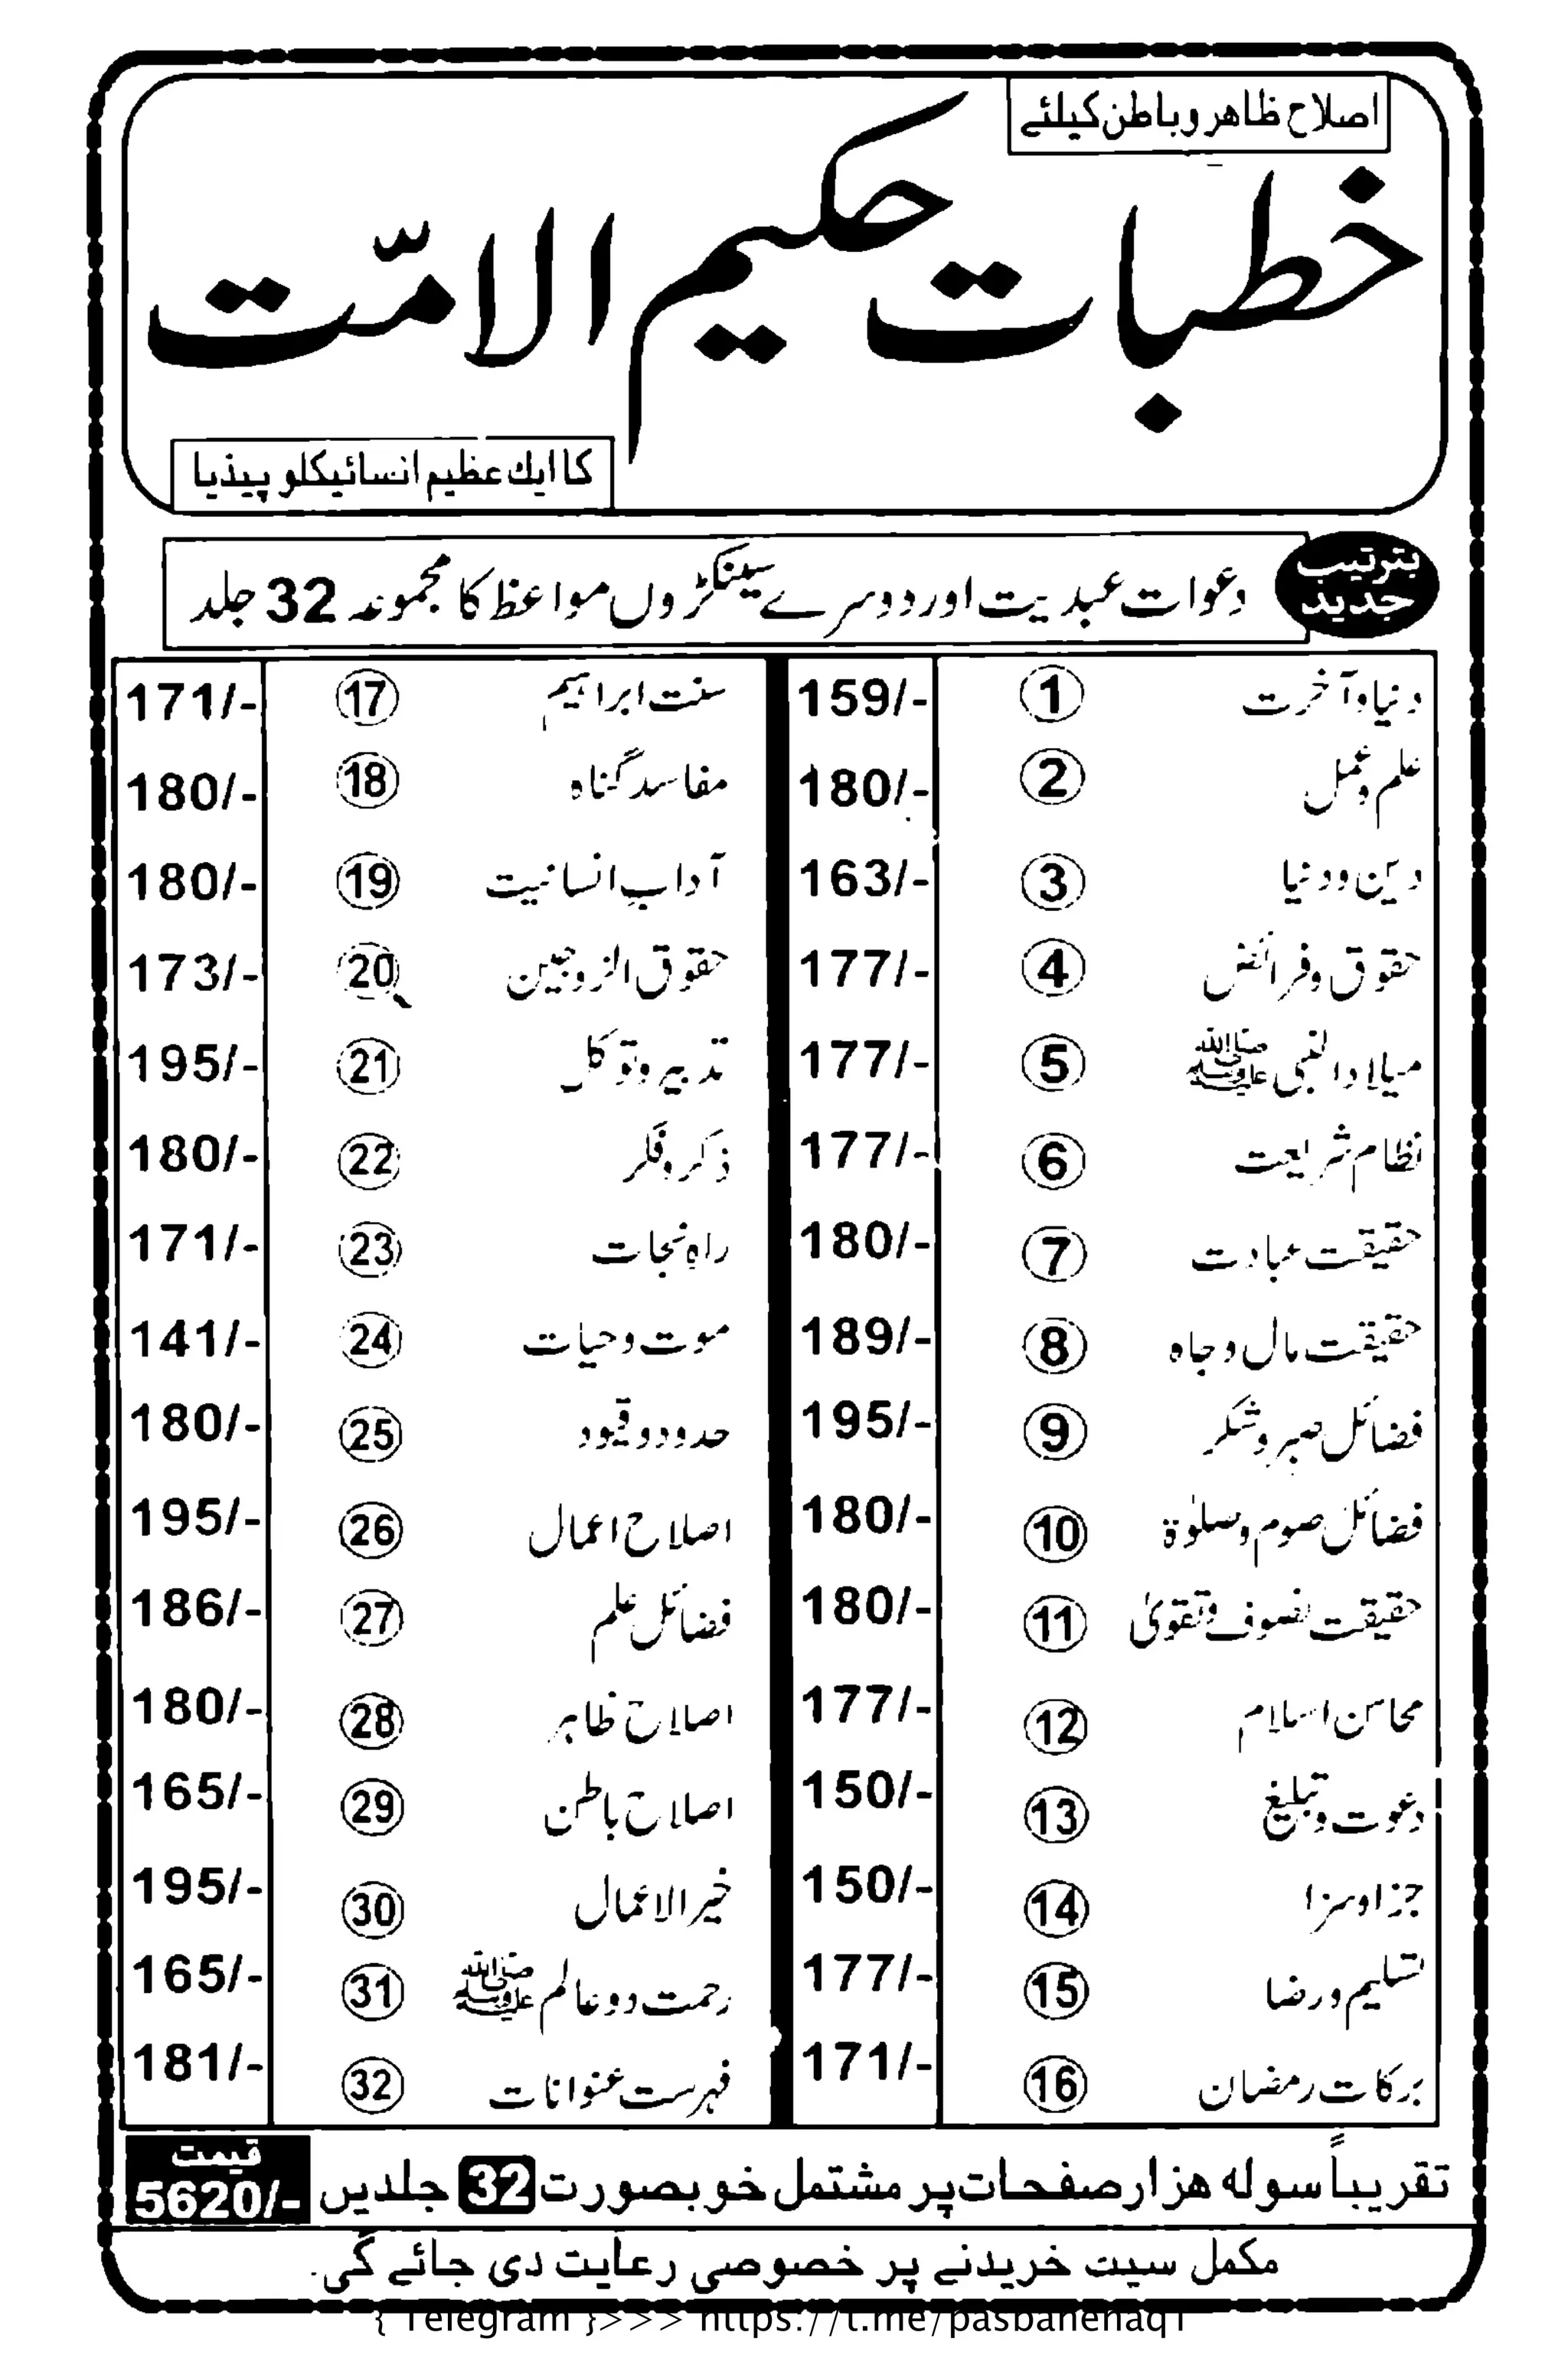 اصلاح ظاهر و باطن کیلئے
خطبات حکیم الامّت
کا ایک عظیم انسائیکلو پیڈیا
بترتیب جدید
دعوات عبدیت اور دوسرے سینکڑوں مواعظ کا مجموعہ 32 جلد
دنیا و آخرت 1 159/-
علم و عمل 2 180/-
دین و دنیا 3 163/-
حقوق و فرائض 4 177/-
میلاد النبی ﷺ 5 177/-
نظام شریعت 6 177/-
حقیقت عبادت 7 180/-
حقیقت مال و جاہ 8 189/-
فضائل صبر و شکر 9 195/-
فضائل صوم و صلوٰۃ 10 180/-
حقیقت تصوف و تقویٰ 11 180/-
محاسن اسلام 12 177/-
دعوت و تبلیغ 13 150/-
جزا و سزا 14 150/-
تسلیم و رضا 15 177/-
برکات رمضان 16 171/-
سنت ابراہیم 17 171/-
مفاسد گناہ 18 180/-
آداب انسانیت 19 180/-
حقوق الزوجین 20 173/-
تدبیر و توکل 21 195/-
ذکر و فکر 22 180/-
راہ نجات 23 171/-
موت و حیات 24 141/-
حدود و قیود 25 180/-
اصلاح اعمال 26 195/-
فضائل علم 27 186/-
اصلاح ظاہر 28 180/-
اصلاح باطن 29 165/-
خیر الاعمال 30 195/-
رحمت دو عالم ﷺ 31 165/-
فہرست عنوانات 32 181/-
تقریباً سولہ هزار صفحات پر مشتمل خوبصورت 32 جلدیں
قیمت 5620/-
مکمل سیٹ خریدنے پر خصوصی رعایت دی جائے گی.
{ Telegram }>>> https://t.me/pasbanehaq1